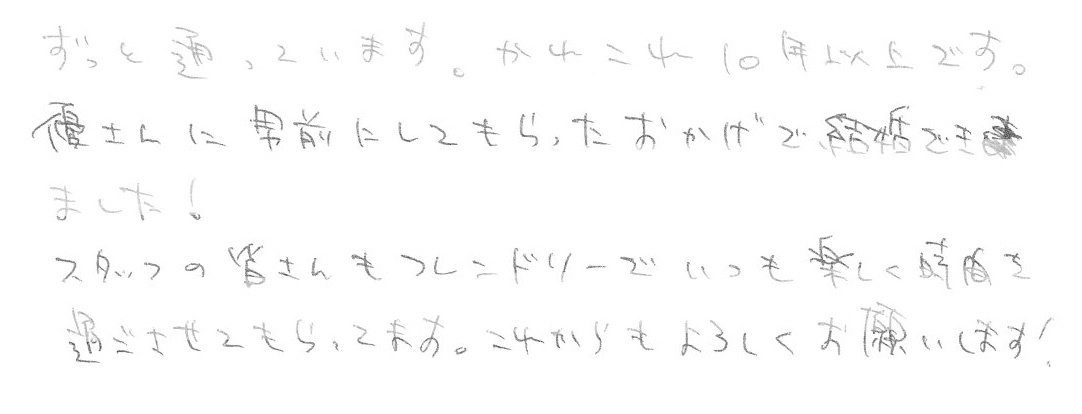 ずっと通っています。かれこれ10年以上です。
優さんに男前にしてもらったおかげで結婚でき
ました！
スタッフの皆さんもフレンドリーでいつも楽しく時間を
過ごさせてもらってます。これからもよろしくお願いします！